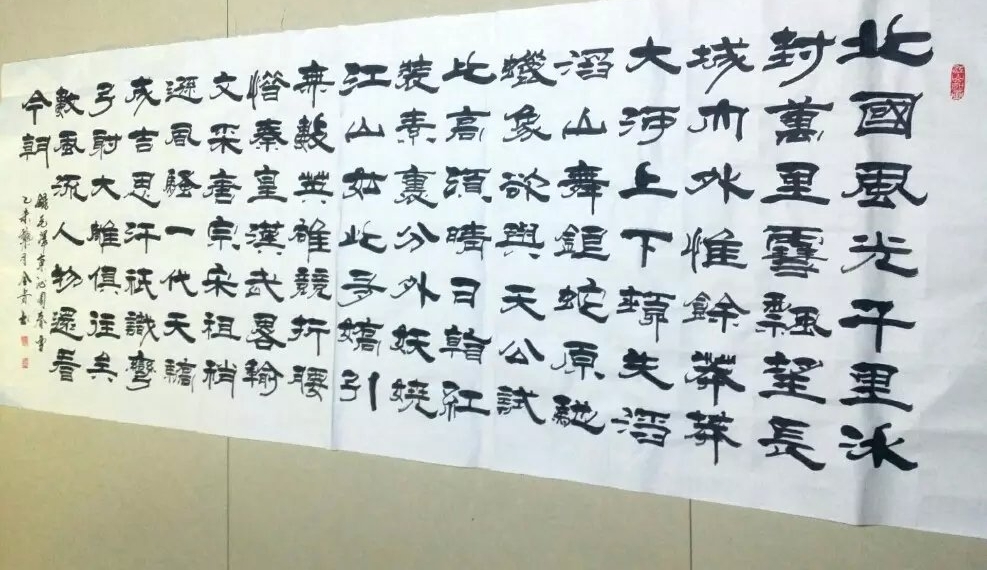 北國風光千里冰
封萬里雪飄望長
城內外惟餘莽莽
大河上下頓失滔
滔山舞銀蛇原馳
蠟象欲與天公試
比高須晴日看紅
裝素裹分外妖嬈
江山如此多嬌引
無數英雄競折腰
惜秦皇漢武畧輸
文采唐宗宋祖稍
遜風騷一代天驕
成吉思汗祇識彎
弓射大雕俱往矣
數風流人物還看
今朝
錄毛澤東沁園春雪
乙未臘月金貴书